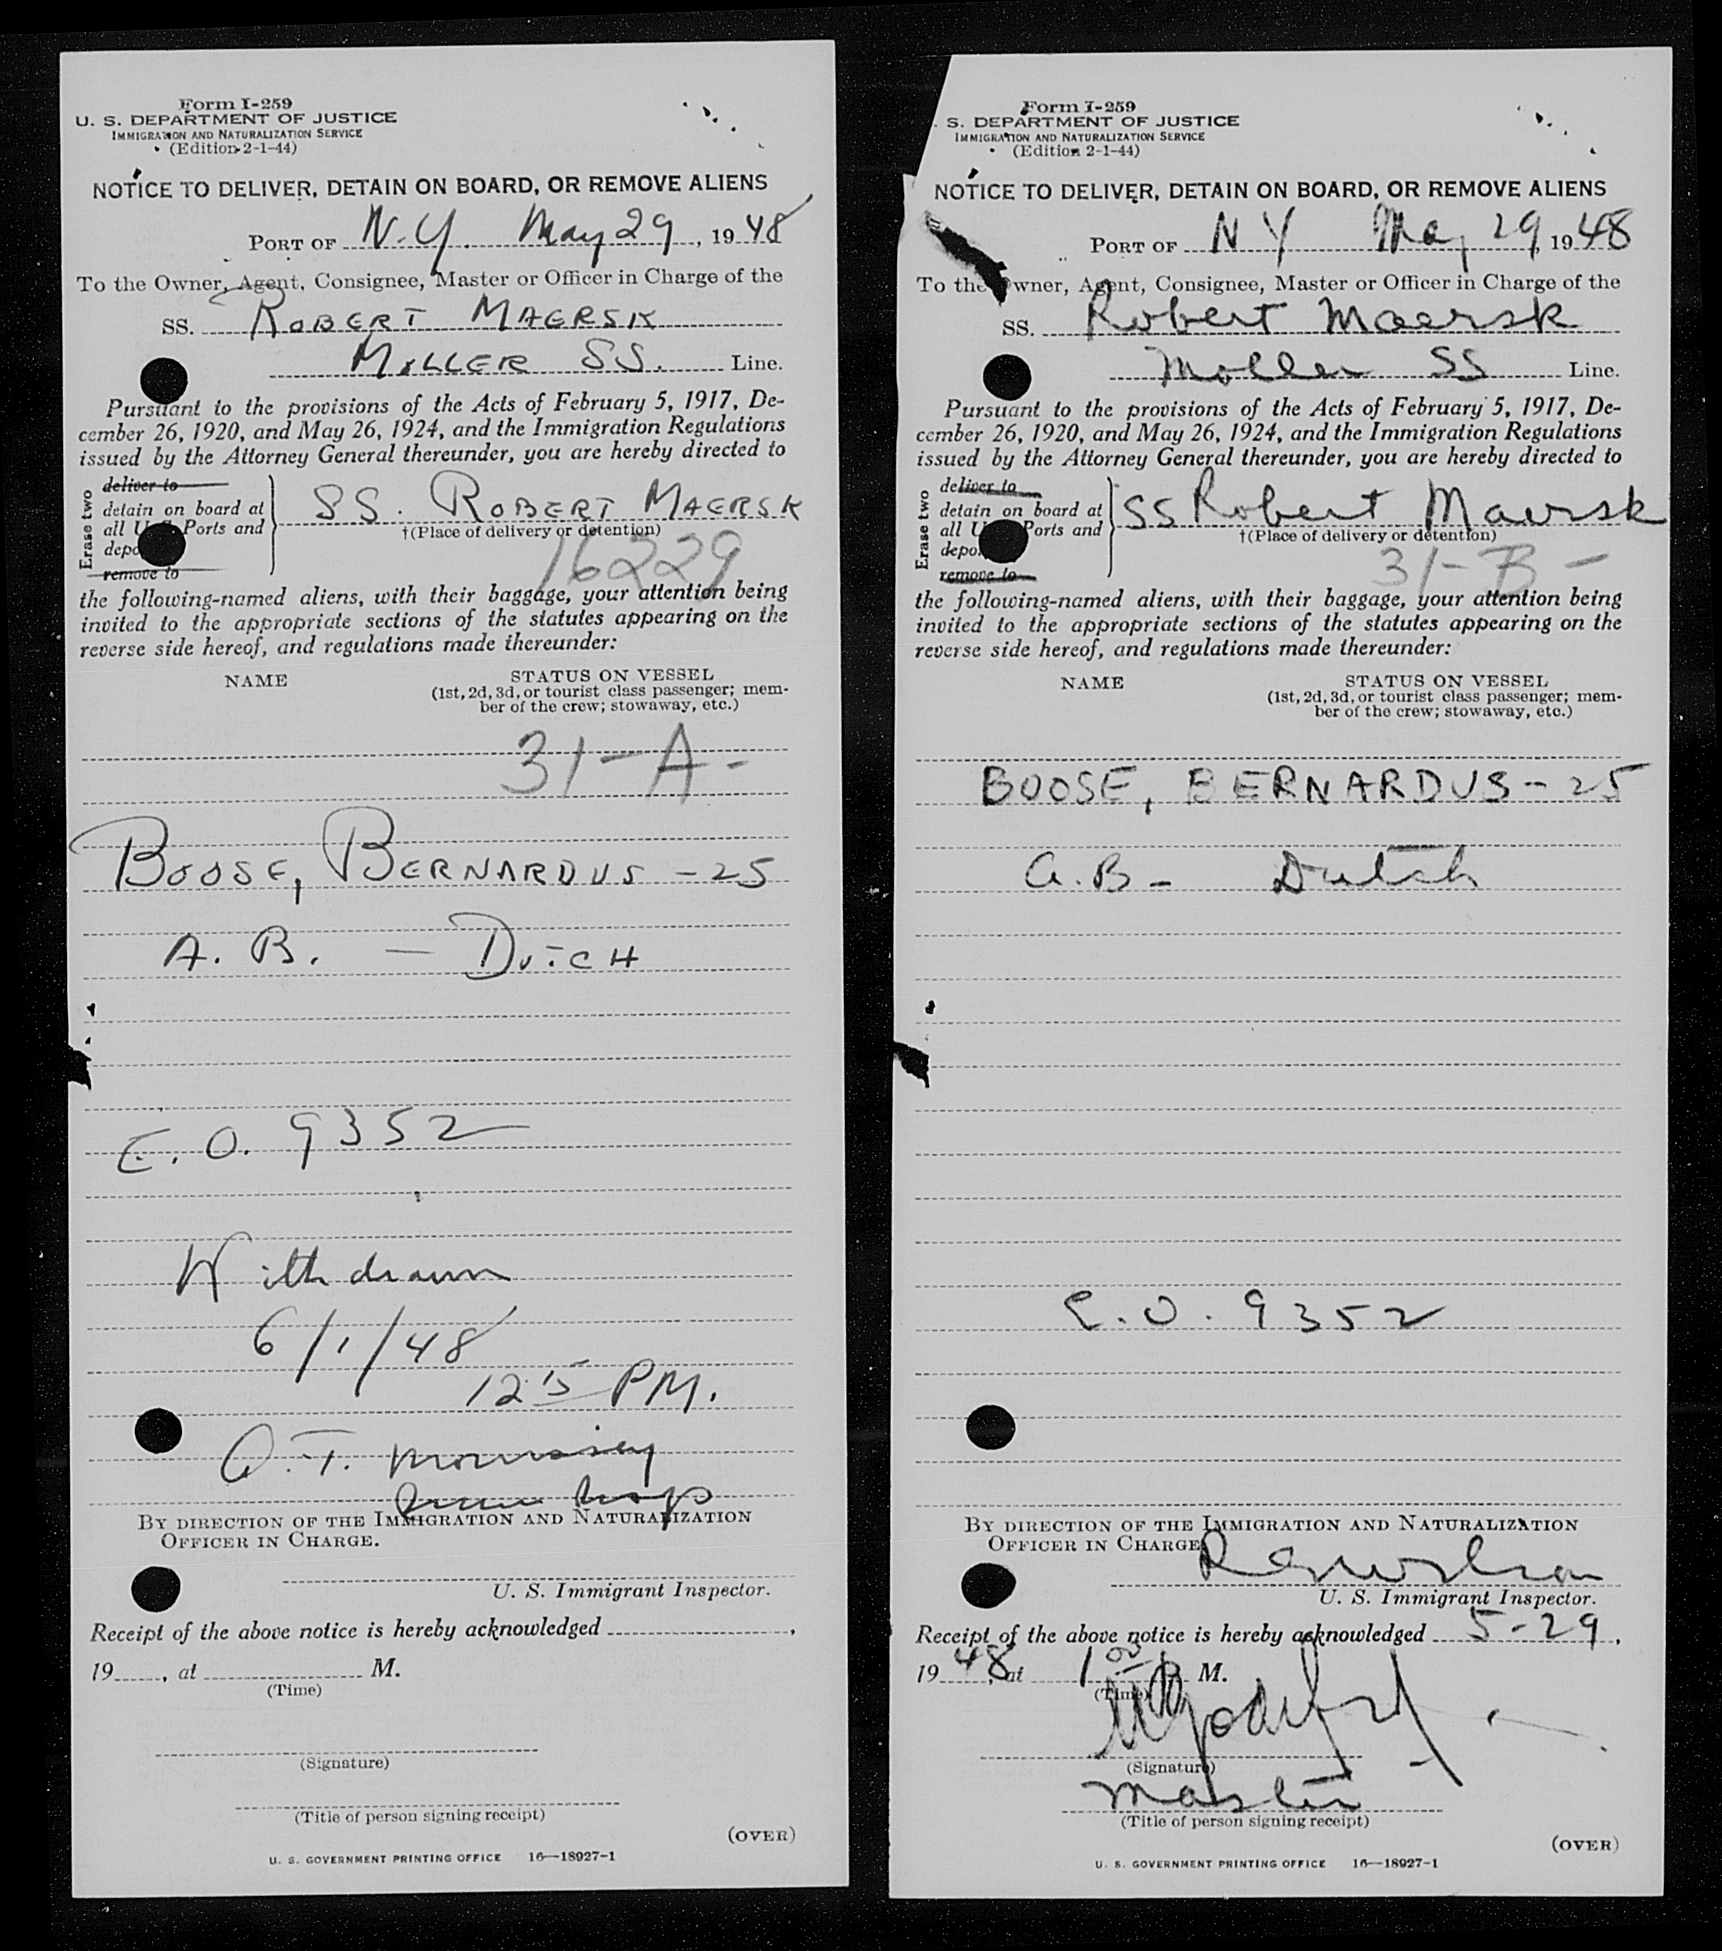 Form I-259
U. S. DEPARTMENT OF JUSTICE
IMMIGRATION AND NATURALIZATION SERVICE
(Edition 2-1-44)
NOTICE TO DELIVER, DETAIN ON BOARD, OR REMOVE ALIENS
PORT OF N.Y. May 29, 1948
To the Owner, Agent, Consignee, Master or Officer in Charge of the
SS. ROBERT MAERSK
MOLLER SS. Line.
Pursuant to the provisions of the Acts of February 5, 1917, De-
cember 26, 1920, and May 26, 1924, and the Immigration Regulations
issued by the Attorney General thereunder, you are hereby directed to
Erase two
deliver to
detain on board at
all U. S. Ports and
depo
remove to
SS. ROBERT MAERSK
†(Place of delivery or detention)
16229
the following-named aliens, with their baggage, your attention being
invited to the appropriate sections of the statutes appearing on the
reverse side hereof, and regulations made thereunder:
NAME
STATUS ON VESSEL
(1st, 2d, 3d, or tourist class passenger; mem-
ber of the crew; stowaway, etc.)
31-A-
BOOSE, BERNARDUS - 25
A. B. — DUTCH
E. O. 9352
Withdrawn
6/1/48
12 15 PM.
O. T. Morrissey
BY DIRECTION OF THE IMMIGRATION AND NATURALIZATION
OFFICER IN CHARGE.
U. S. Immigrant Inspector.
Receipt of the above notice is hereby acknowledged ,
19 , at M.
(Time)
(Signature)
(Title of person signing receipt)
(OVER)
U. S. GOVERNMENT PRINTING OFFICE 16—18927-1
Form I-259
. S. DEPARTMENT OF JUSTICE
IMMIGRATION AND NATURALIZATION SERVICE
(Edition 2-1-44)
NOTICE TO DELIVER, DETAIN ON BOARD, OR REMOVE ALIENS
PORT OF N Y May 29, 1948
To the Owner, Agent, Consignee, Master or Officer in Charge of the
SS. Robert Maersk
Moller SS Line.
Pursuant to the provisions of the Acts of February 5, 1917, De-
cember 26, 1920, and May 26, 1924, and the Immigration Regulations
issued by the Attorney General thereunder, you are hereby directed to
Erase two
deliver to
detain on board at
all U Ports and
depo
remove to
SS Robert Maersk
†(Place of delivery or detention)
31-B-
the following-named aliens, with their baggage, your attention being
invited to the appropriate sections of the statutes appearing on the
reverse side hereof, and regulations made thereunder:
NAME
STATUS ON VESSEL
(1st, 2d, 3d, or tourist class passenger; mem-
ber of the crew; stowaway, etc.)
BOOSE, BERNARDUS - 25
A. B - Dutch
E. O. 9352
BY DIRECTION OF THE IMMIGRATION AND NATURALIZATION
OFFICER IN CHARGE
U. S. Immigrant Inspector.
Receipt of the above notice is hereby acknowledged 5-29,
1948, at 1 00 P M.
(Time)
(Signature)
Master
(Title of person signing receipt)
(OVER)
U. S. GOVERNMENT PRINTING OFFICE 16—18927-1